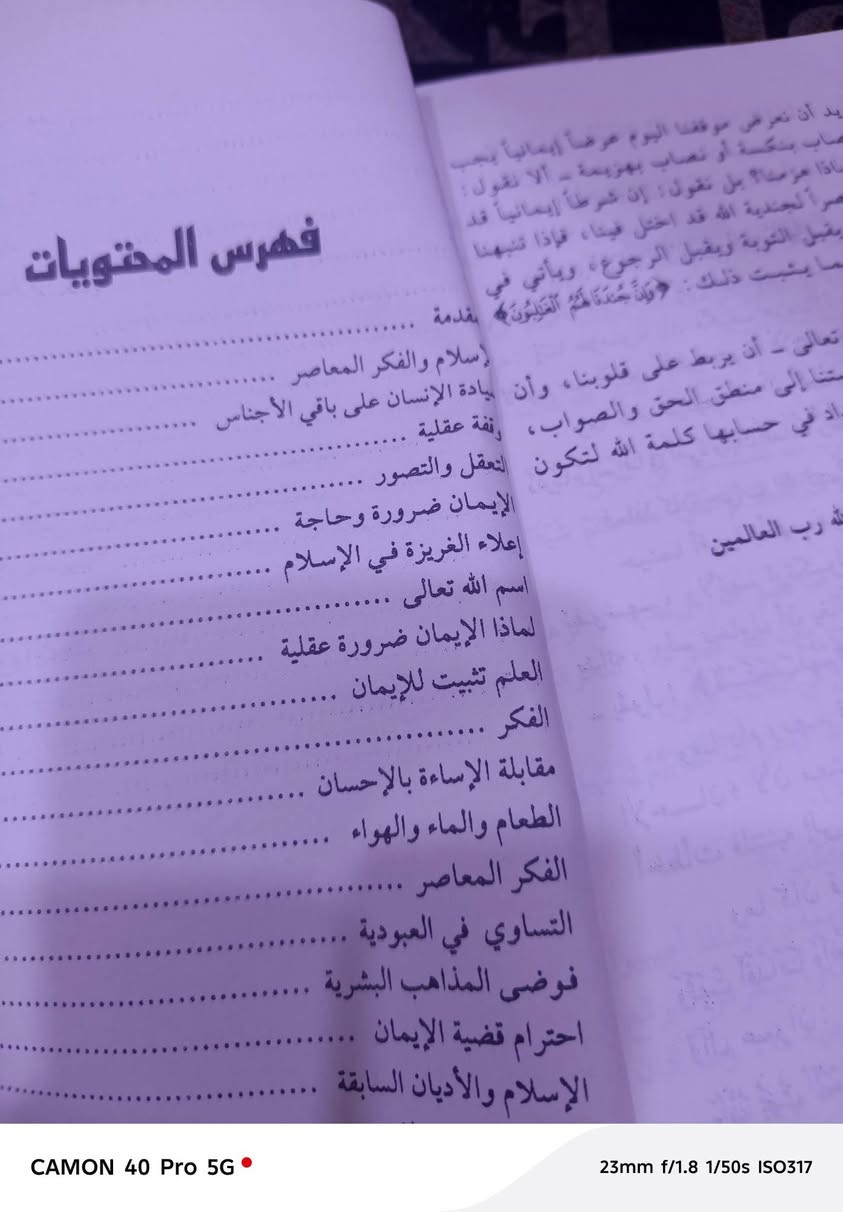 أن نعرض موقفنا اليوم عرضاً إيمانياً يجب
بنكسة أو نصاب بهزيمة - ألا نقول:
هزمنا؟ بل نقول: إن شرطاً إيمانياً قد
لجندية الله قد اختل فينا، فإذا تنبهنا
يقبل التوبة ويقبل الرجوع، ويأتي في
يثبت ذلك: ﴿وَإِنَّ جُندَنَا لَهُمُ الْغَالِبُونَ﴾
تعالى - أن يربط على قلوبنا، وأن
إلى منطق الحق والصواب،
في حسابها كلمة الله لتكون
رب العالمين
فهرس المحتويات
مقدمة
الإسلام والفكر المعاصر
سيادة الإنسان على باقي الأجناس
وقفة عقلية
التعقل والتصور
الإيمان ضرورة وحاجة
إعلاء الغريزة في الإسلام
اسم الله تعالى
لماذا الإيمان ضرورة عقلية
العلم تثبيت للإيمان
الفكر
مقابلة الإساءة بالإحسان
الطعام والماء والهواء
الفكر المعاصر
التساوي في العبودية
فوضى المذاهب البشرية
احترام قضية الإيمان
الإسلام والأديان السابقة
CAMON 40 Pro 5G
23mm f/1.8 1/50s ISO317